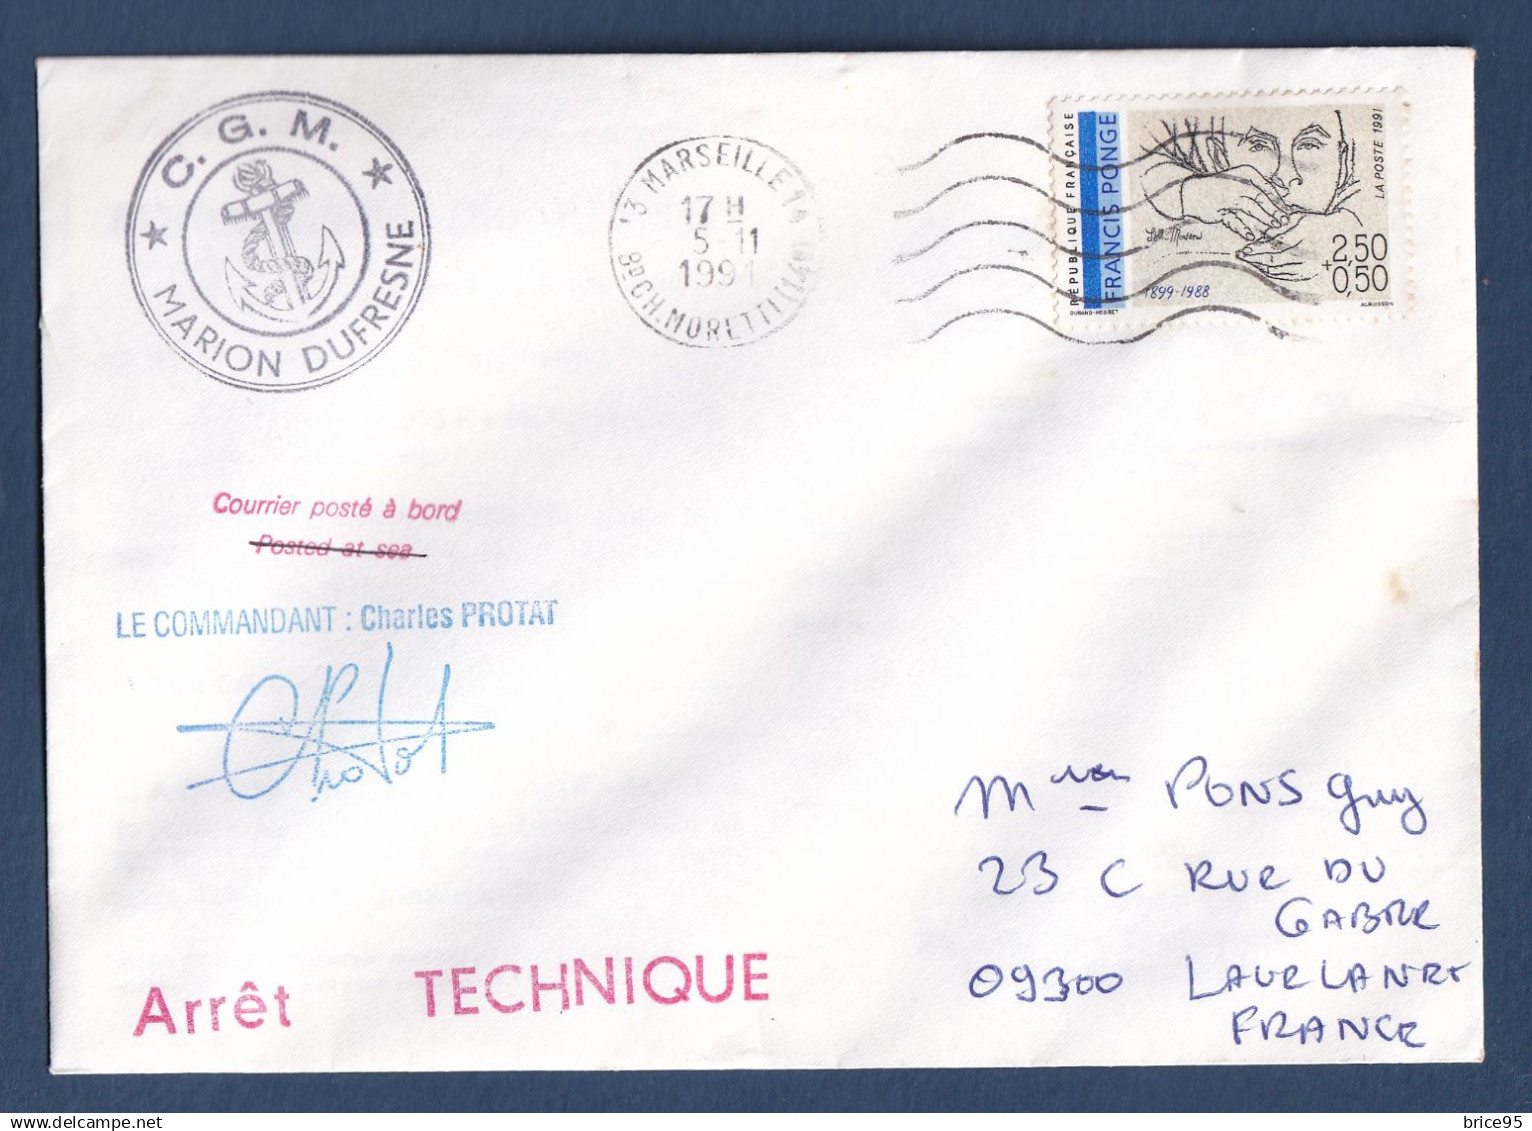 C. G. M.
MARION DUFRESNE
13 MARSEILLE 14
17 H
5-11
1991
BD CH. MORETTI (14E)
RÉPUBLIQUE FRANÇAISE
FRANCIS PONGE
LA POSTE 1991
2,50
+0,50
1899-1988
DURAND-MEGRET
ALBUISSON
Courrier posté à bord
Posted at sea
LE COMMANDANT : Charles PROTAT
CProtat
PONS Guy
23 C RUE DU
GABRE
09300 LAVELANET
FRANCE
Arrêt TECHNIQUE
brice95